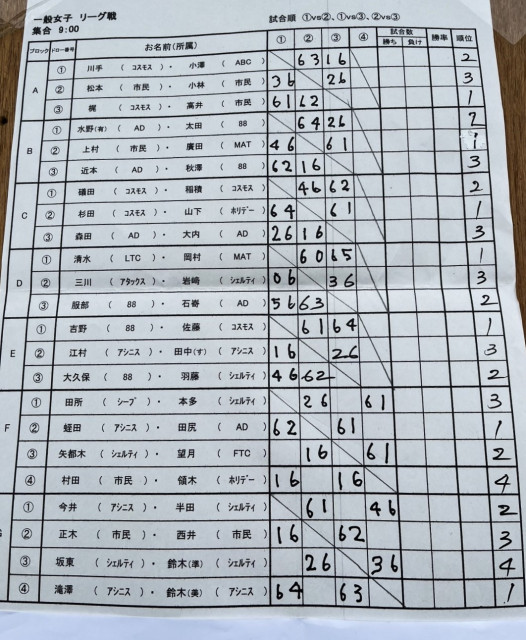 一般女子 リーグ戦
集合 9:00
試合順 ①vs②、①vs③、②vs③
ブロック ドロー番号 お名前(所属) ① ② ③ ④ 試合数 勝ち 負け 勝率 順位
A
① 川手 ( コスモス ) ・ 小澤 ( ABC ) 63 16 2
② 松本 ( 市民 ) ・ 小林 ( 市民 ) 36 26 3
③ 梶 ( コスモス ) ・ 高井 ( 市民 ) 61 62 1
B
① 水野(有) ( AD ) ・ 太田 ( 88 ) 64 26 2
② 上村 ( 市民 ) ・ 廣田 ( MAT ) 46 61 1
③ 近本 ( AD ) ・ 秋澤 ( 88 ) 62 16 3
C
① 礒田 ( コスモス ) ・ 稲積 ( コスモス ) 46 62 2
② 杉田 ( コスモス ) ・ 山下 ( ホリデー ) 64 61 1
③ 森田 ( AD ) ・ 大内 ( AD ) 26 16 3
D
① 清水 ( LTC ) ・ 岡村 ( MAT ) 60 65 1
② 三川 ( アタックス ) ・ 岩崎 ( シェルティ ) 06 36 3
③ 服部 ( 88 ) ・ 石嵜 ( AD ) 56 63 2
E
① 吉野 ( 88 ) ・ 佐藤 ( コスモス ) 61 64 1
② 江村 ( アシニス ) ・ 田中(す) ( アシニス ) 16 26 3
③ 大久保 ( 88 ) ・ 羽藤 ( シェルティ ) 46 62 2
F
① 田所 ( シープ ) ・ 本多 ( シェルティ ) 26 61 3
② 蛭田 ( アシニス ) ・ 田尻 ( AD ) 62 61 1
③ 矢都木 ( シェルティ ) ・ 望月 ( FTC ) 16 61 2
④ 村田 ( 市民 ) ・ 領木 ( ホリデー ) 16 16 4
G
① 今井 ( アシニス ) ・ 半田 ( シェルティ ) 61 46 2
② 正木 ( 市民 ) ・ 西井 ( 市民 ) 16 62 3
③ 坂東 ( シェルティ ) ・ 鈴木(準) ( シェルティ ) 26 36 4
④ 滝澤 ( アシニス ) ・ 鈴木(美) ( アシニス ) 64 63 1